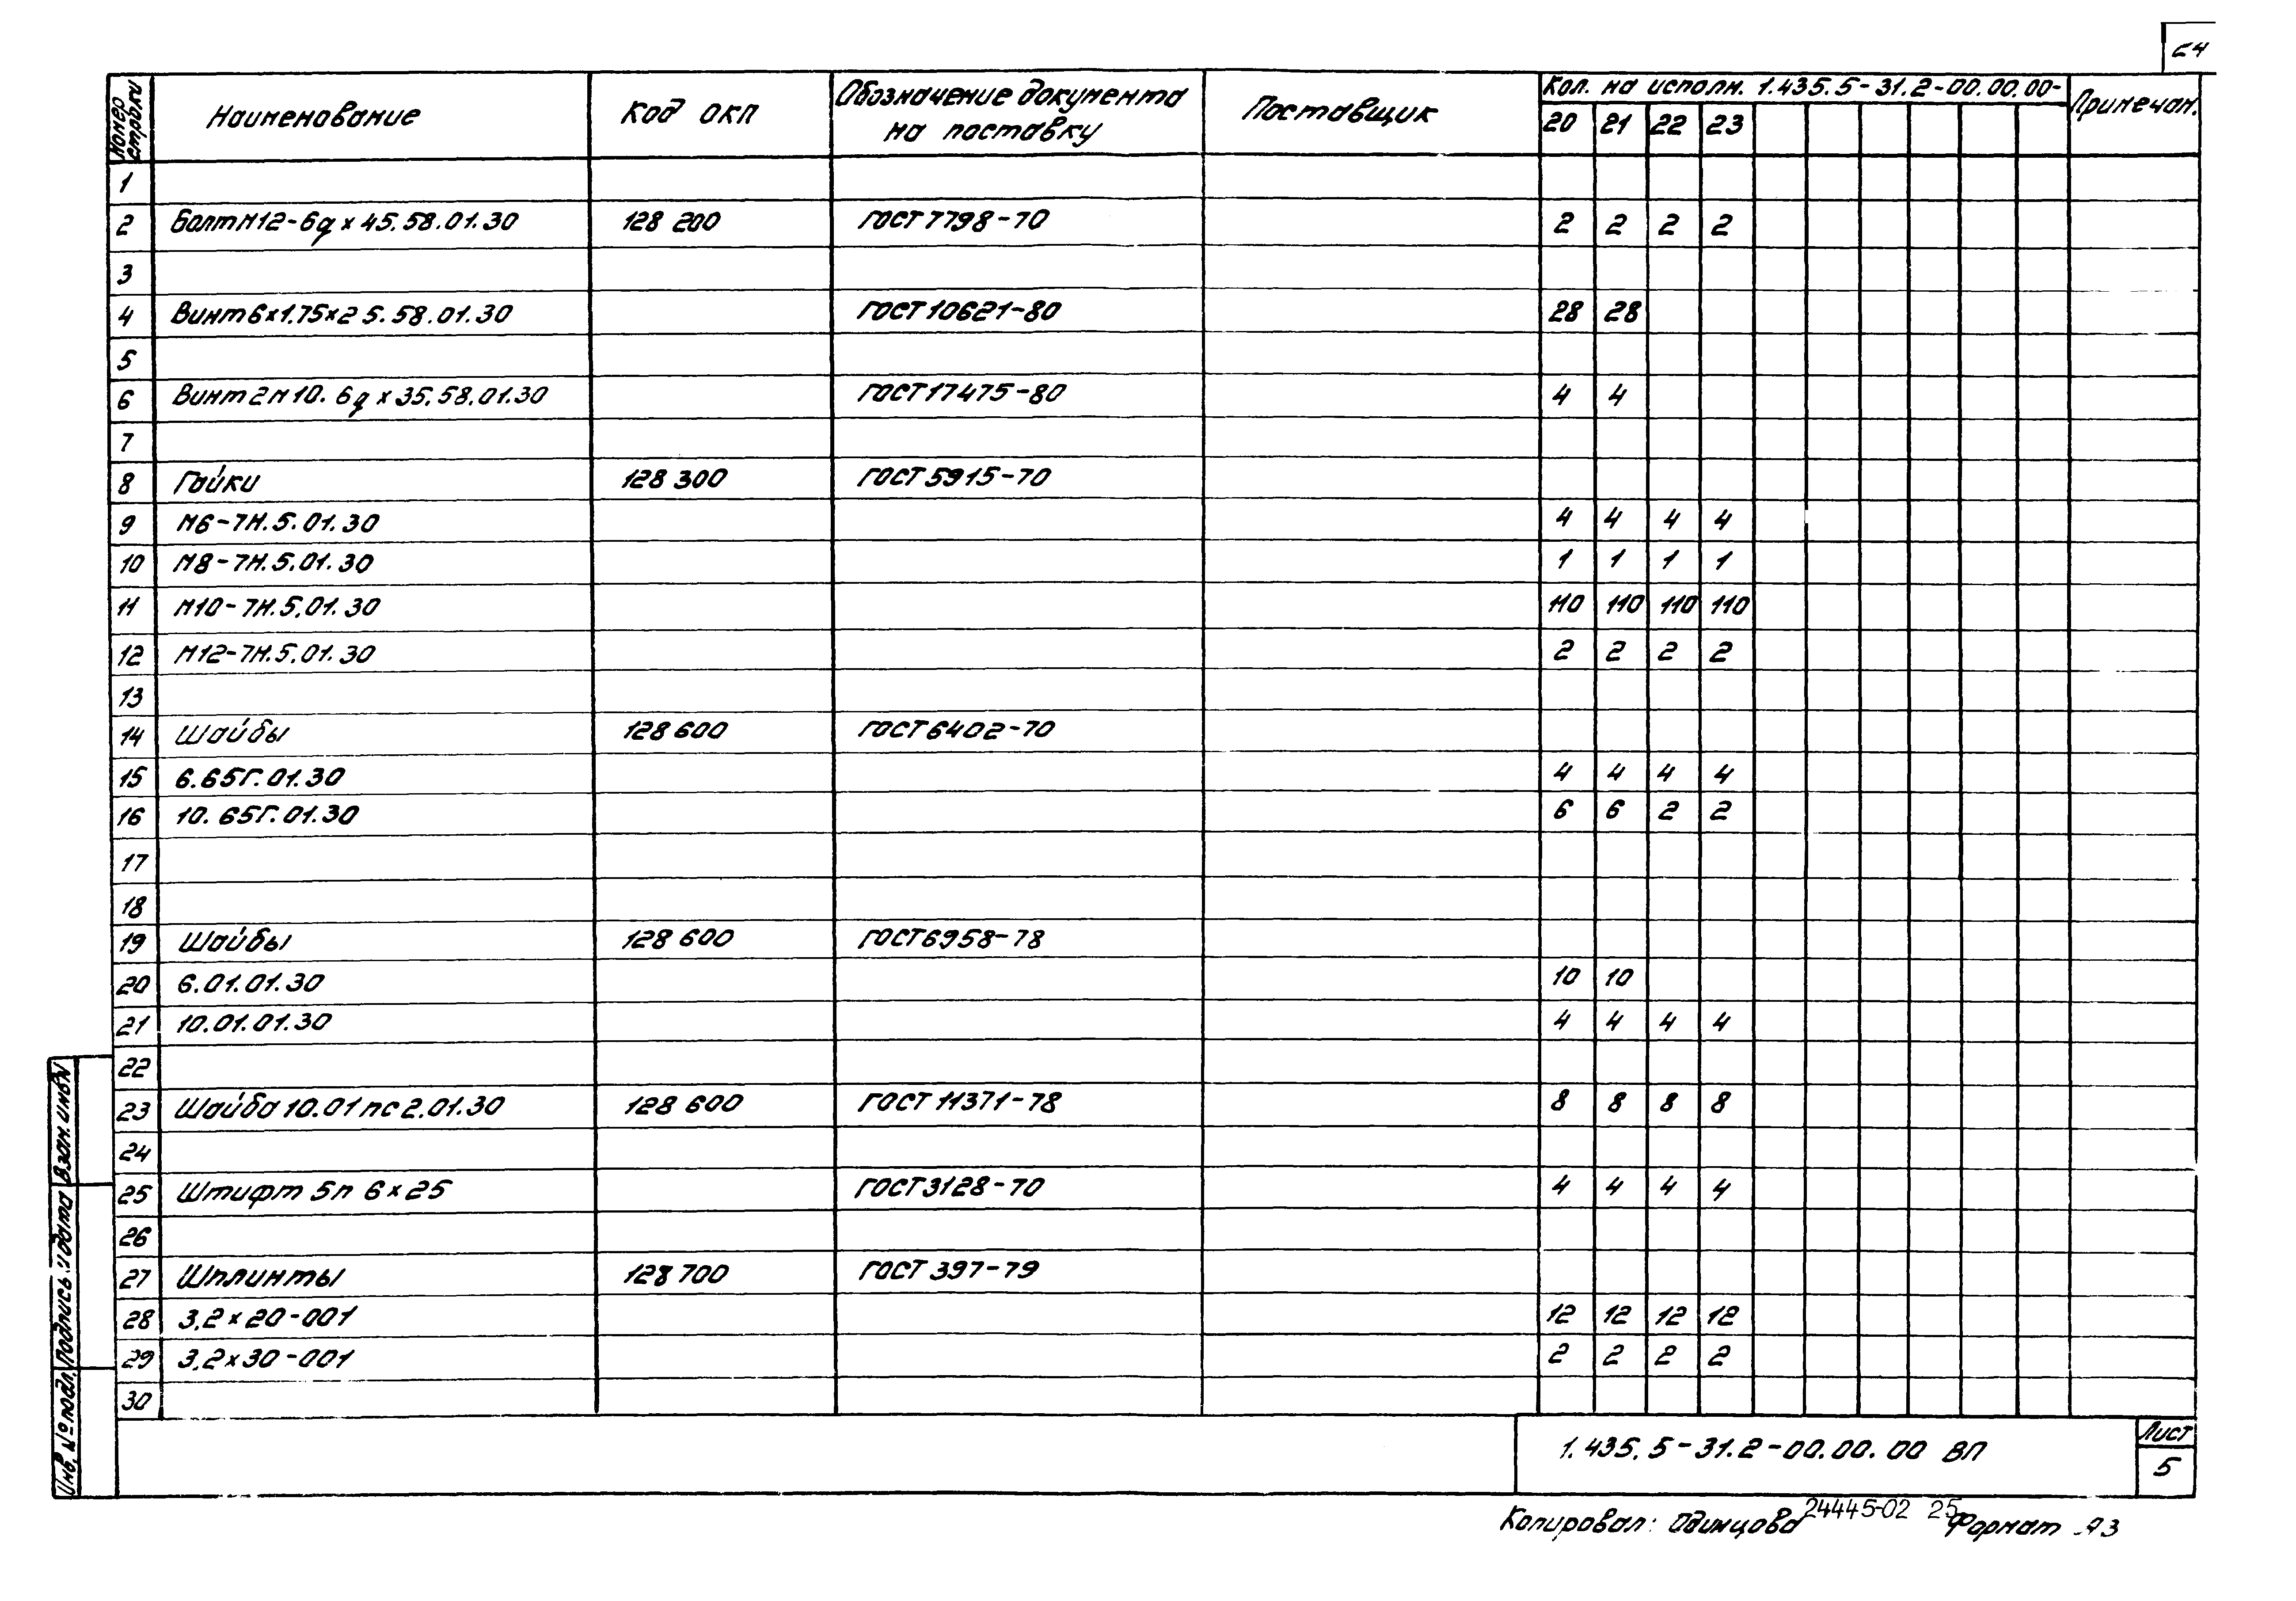 24
Номер строки Наименование Код ОКП Обозначение документа на поставку Поставщик Кол. на исполн. 1.435.5-31.2-00.00.00- Примечан.
20 21 22 23
1
2 Болт М12-6g х 45.58.01.30 128 200 ГОСТ 7798-70 2 2 2 2
3
4 Винт 6х1.75х25.58.01.30 ГОСТ 10621-80 28 28
5
6 Винт 2М10.6g х 35.58.01.30 ГОСТ 17475-80 4 4
7
8 Гайки 128 300 ГОСТ 5915-70
9 М6-7Н.5.01.30 4 4 4 4
10 М8-7Н.5.01.30 1 1 1 1
11 М10-7Н.5.01.30 110 110 110 110
12 М12-7Н.5.01.30 2 2 2 2
13
14 Шайбы 128 600 ГОСТ 6402-70
15 6.65Г.01.30 4 4 4 4
16 10.65Г.01.30 6 6 2 2
17
18
19 Шайбы 128 600 ГОСТ 6958-78
20 6.01.01.30 10 10
21 10.01.01.30 4 4 4 4
22
23 Шайба 10.01 пс 2.01.30 128 600 ГОСТ 11371-78 8 8 8 8
24
25 Штифт 5п 6х25 ГОСТ 3128-70 4 4 4 4
26
27 Шплинты 128 700 ГОСТ 397-79
28 3.2х20-001 12 12 12 12
29 3.2х30-001 2 2 2 2
30
Инв. № подл. Подпись и дата Взам. инв N
1.435.5-31.2-00.00.00 ВП
Лист
5
Копировал: Одинцова 24445-02 25 Формат А3